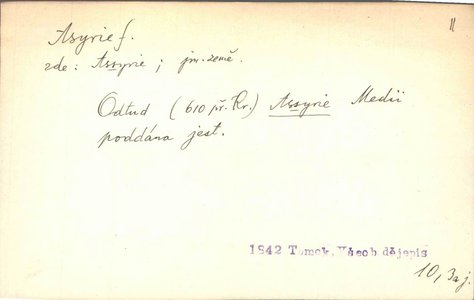 Asyrie f.
11
zde: Assyrie; jm. země.
Odtud (610 př. Kr.) Assyrie Medii
poddána jest.
1842 Tomek, Všeob dějepis
10, 3aj.